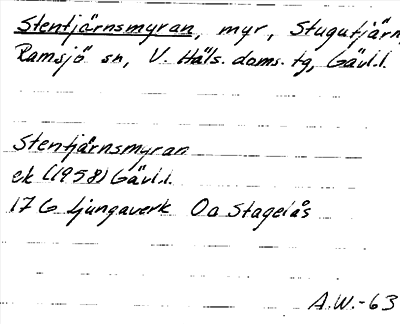 Stentjärnsmyran, myr, Stugutjärn
Ramsjö sn, V. Häls. doms. tg, Gävl.l.
Stentjärnsmyran
ek (1958) Gävl.l.
17 G Ljungaverk 0a Stagelås
A.W.-63